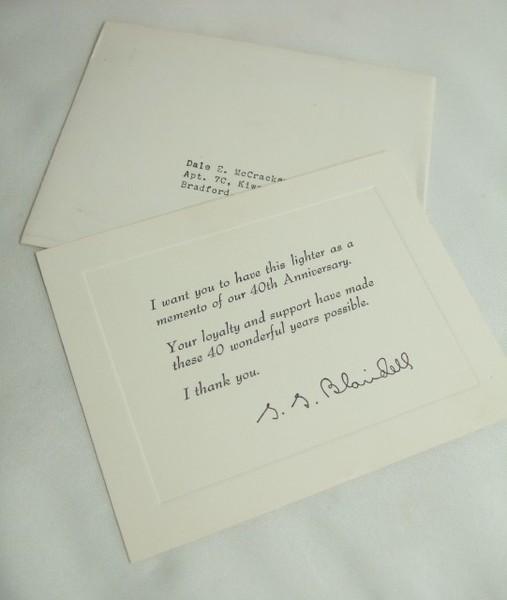 Dale E.
Apt. 7C,
Bradford
I want you to have this lighter as a
memento of our 40th Anniversary.
Your loyalty and support have made
these 40 wonderful years possible.
I thank you.
G. G. Blaisdell